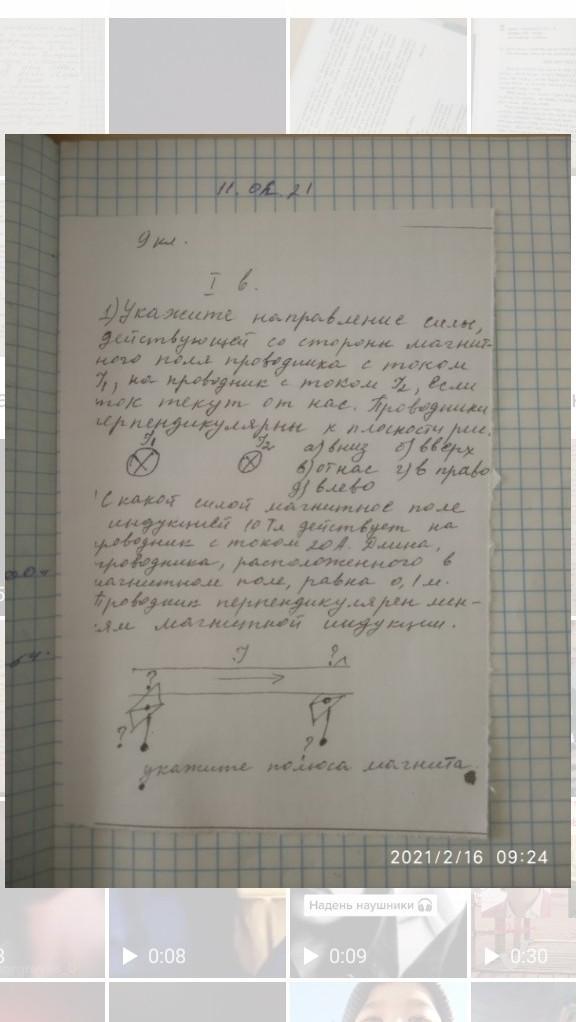 11. 02. 21
9 кл.
I в.
1) Укажите направление силы,
действующей со стороны магнит-
ного поля проводника с током
J1, на проводник с током J2, если
ток текут от нас. Проводники
ерпендикулярны к плоскости рис.
J1 J2 а) вниз б) вверх
в) от нас г) в право
д) влево
С какой силой магнитное поле
индукцией 10 Тл действует на
роводник с током 20 А. Длина,
проводника, расположенного в
магнитном поле, равна 0,1 м.
Проводник перпендикулярен мен-
ям магнитной индукции.
J ?
?
? ?
укажите полюса магнита.
2021/2/16 09:24
Надень наушники
0:08 0:09 0:30